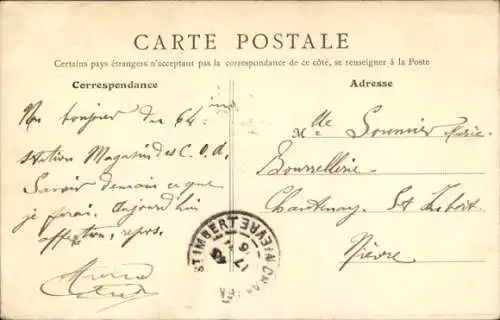 CARTE POSTALE
Certains pays étrangers n'acceptant pas la correspondance de ce côté, se renseigner à la Poste
Correspondance
Adresse
bonjour du 64
station Magasin des C.O.A.
Savoir demain ce que
je ferai. Aujourd'hui
repos.
Mlle Marie
Bourrellerie
Chantenay St Imbert
Nièvre
ST IMBERT
NIEVRE
17